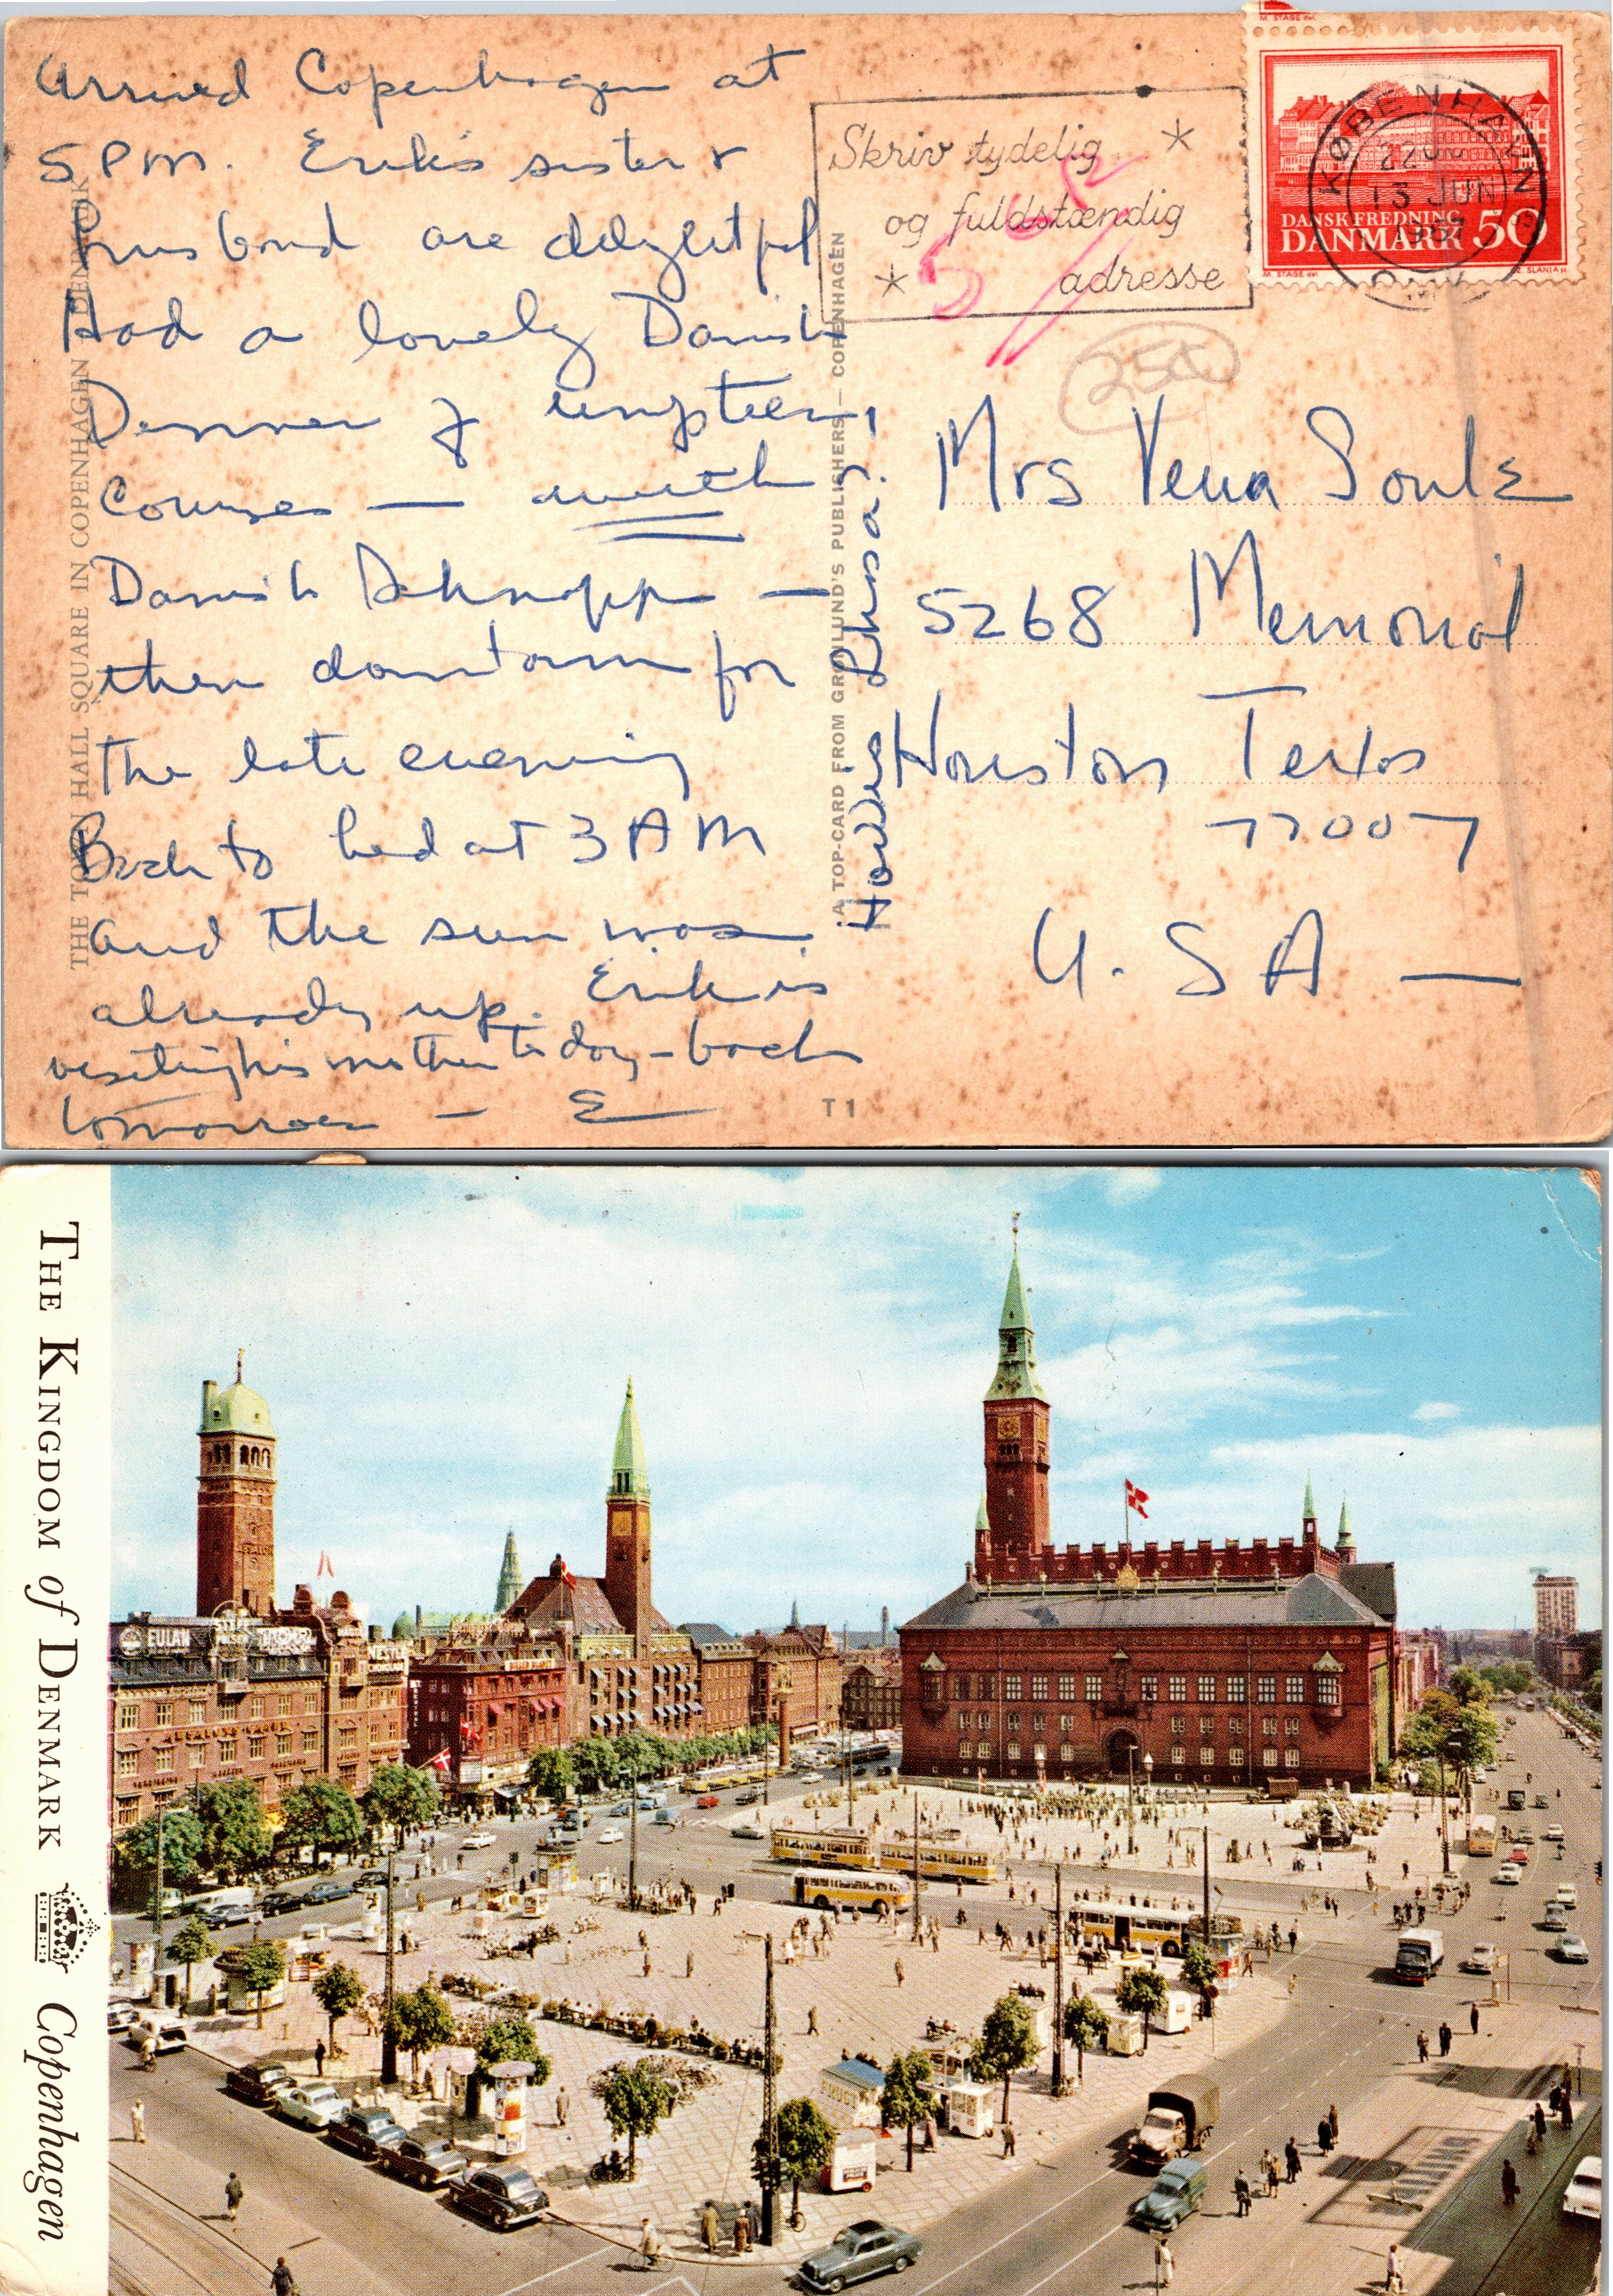 Arrived Copenhagen at
5 PM. Erik's sister &
husband are delightful
Had a lovely Danish
Dinner of umpteen
Courses — with
Danish Schnapps —
then downtown for
the late evening
Back to bed at 3 AM
and the sun was
already up. Erik is
visiting his mother today – back
tomorrow — E
THE TOWN HALL SQUARE IN COPENHAGEN DENMARK
A TOP-CARD FROM GRØNLUND'S PUBLISHERS — COPENHAGEN
T 1
Skriv tydelig
og fuldstændig
adresse
M. STAGE del.
KØBENHAVN
22
13 JUN
1967
OMK
DANSK FREDNING
DANMARK 50
M. STAGE del. CZ. SLANIA sc.
25¢
Mrs Vena Soule
5268 Memorial
Houston Texas
77007
U.S A —
THE KINGDOM of DENMARK Copenhagen
EULAN
NESTLÉ
FRUGT